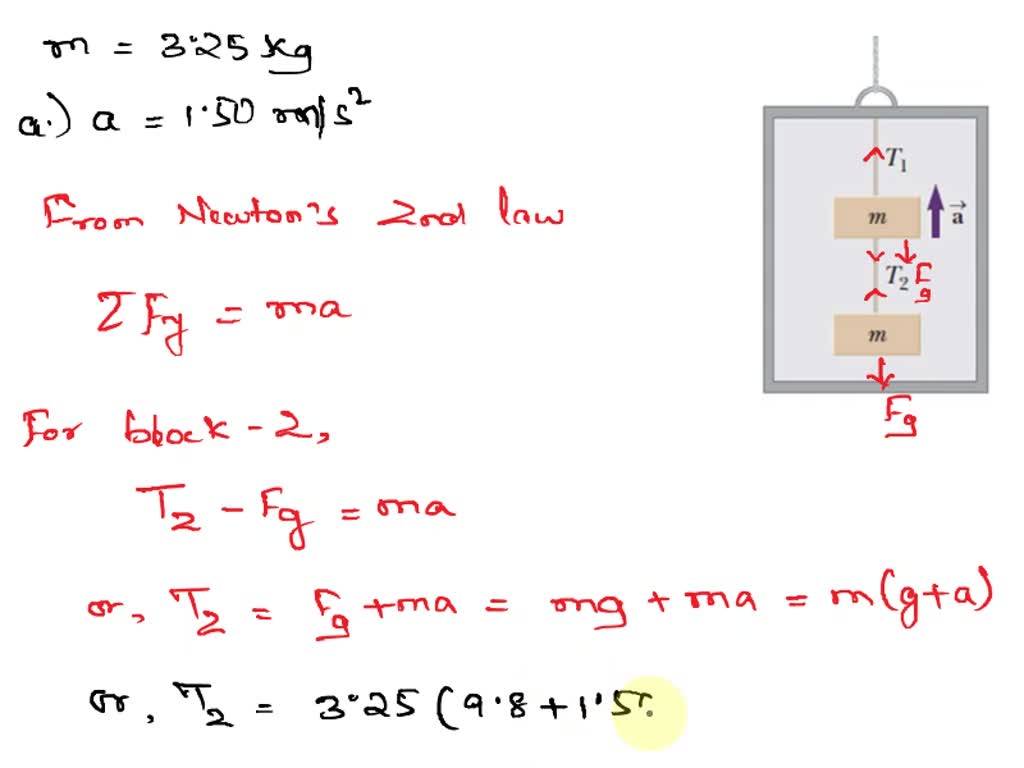 m = 3.25 kg
a.) a = 1.50 m/s²
From Newton's 2nd law
ΣFy = ma
For block-2,
T₂ - Fg = ma
or, T₂ = Fg + ma = mg + ma = m(g+a)
or, T₂ = 3.25 (9.8 + 1.5
T₁
m
a⃗
T₂ Fg
m
Fg